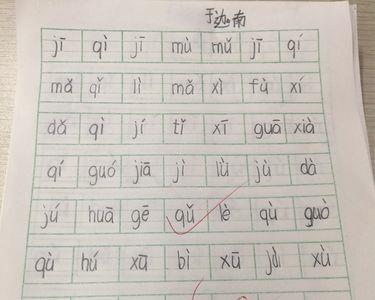 于迦南
jī qì jī mù mǔ jī qí
mǎ qǐ lì mǎ xì fù xí
dǎ qì jí tǐ xī guā xià
qí guó jiā jì lǜ jù dà
jú huā gē qǔ lè qù guò
qù hú xū bì xū jù xù